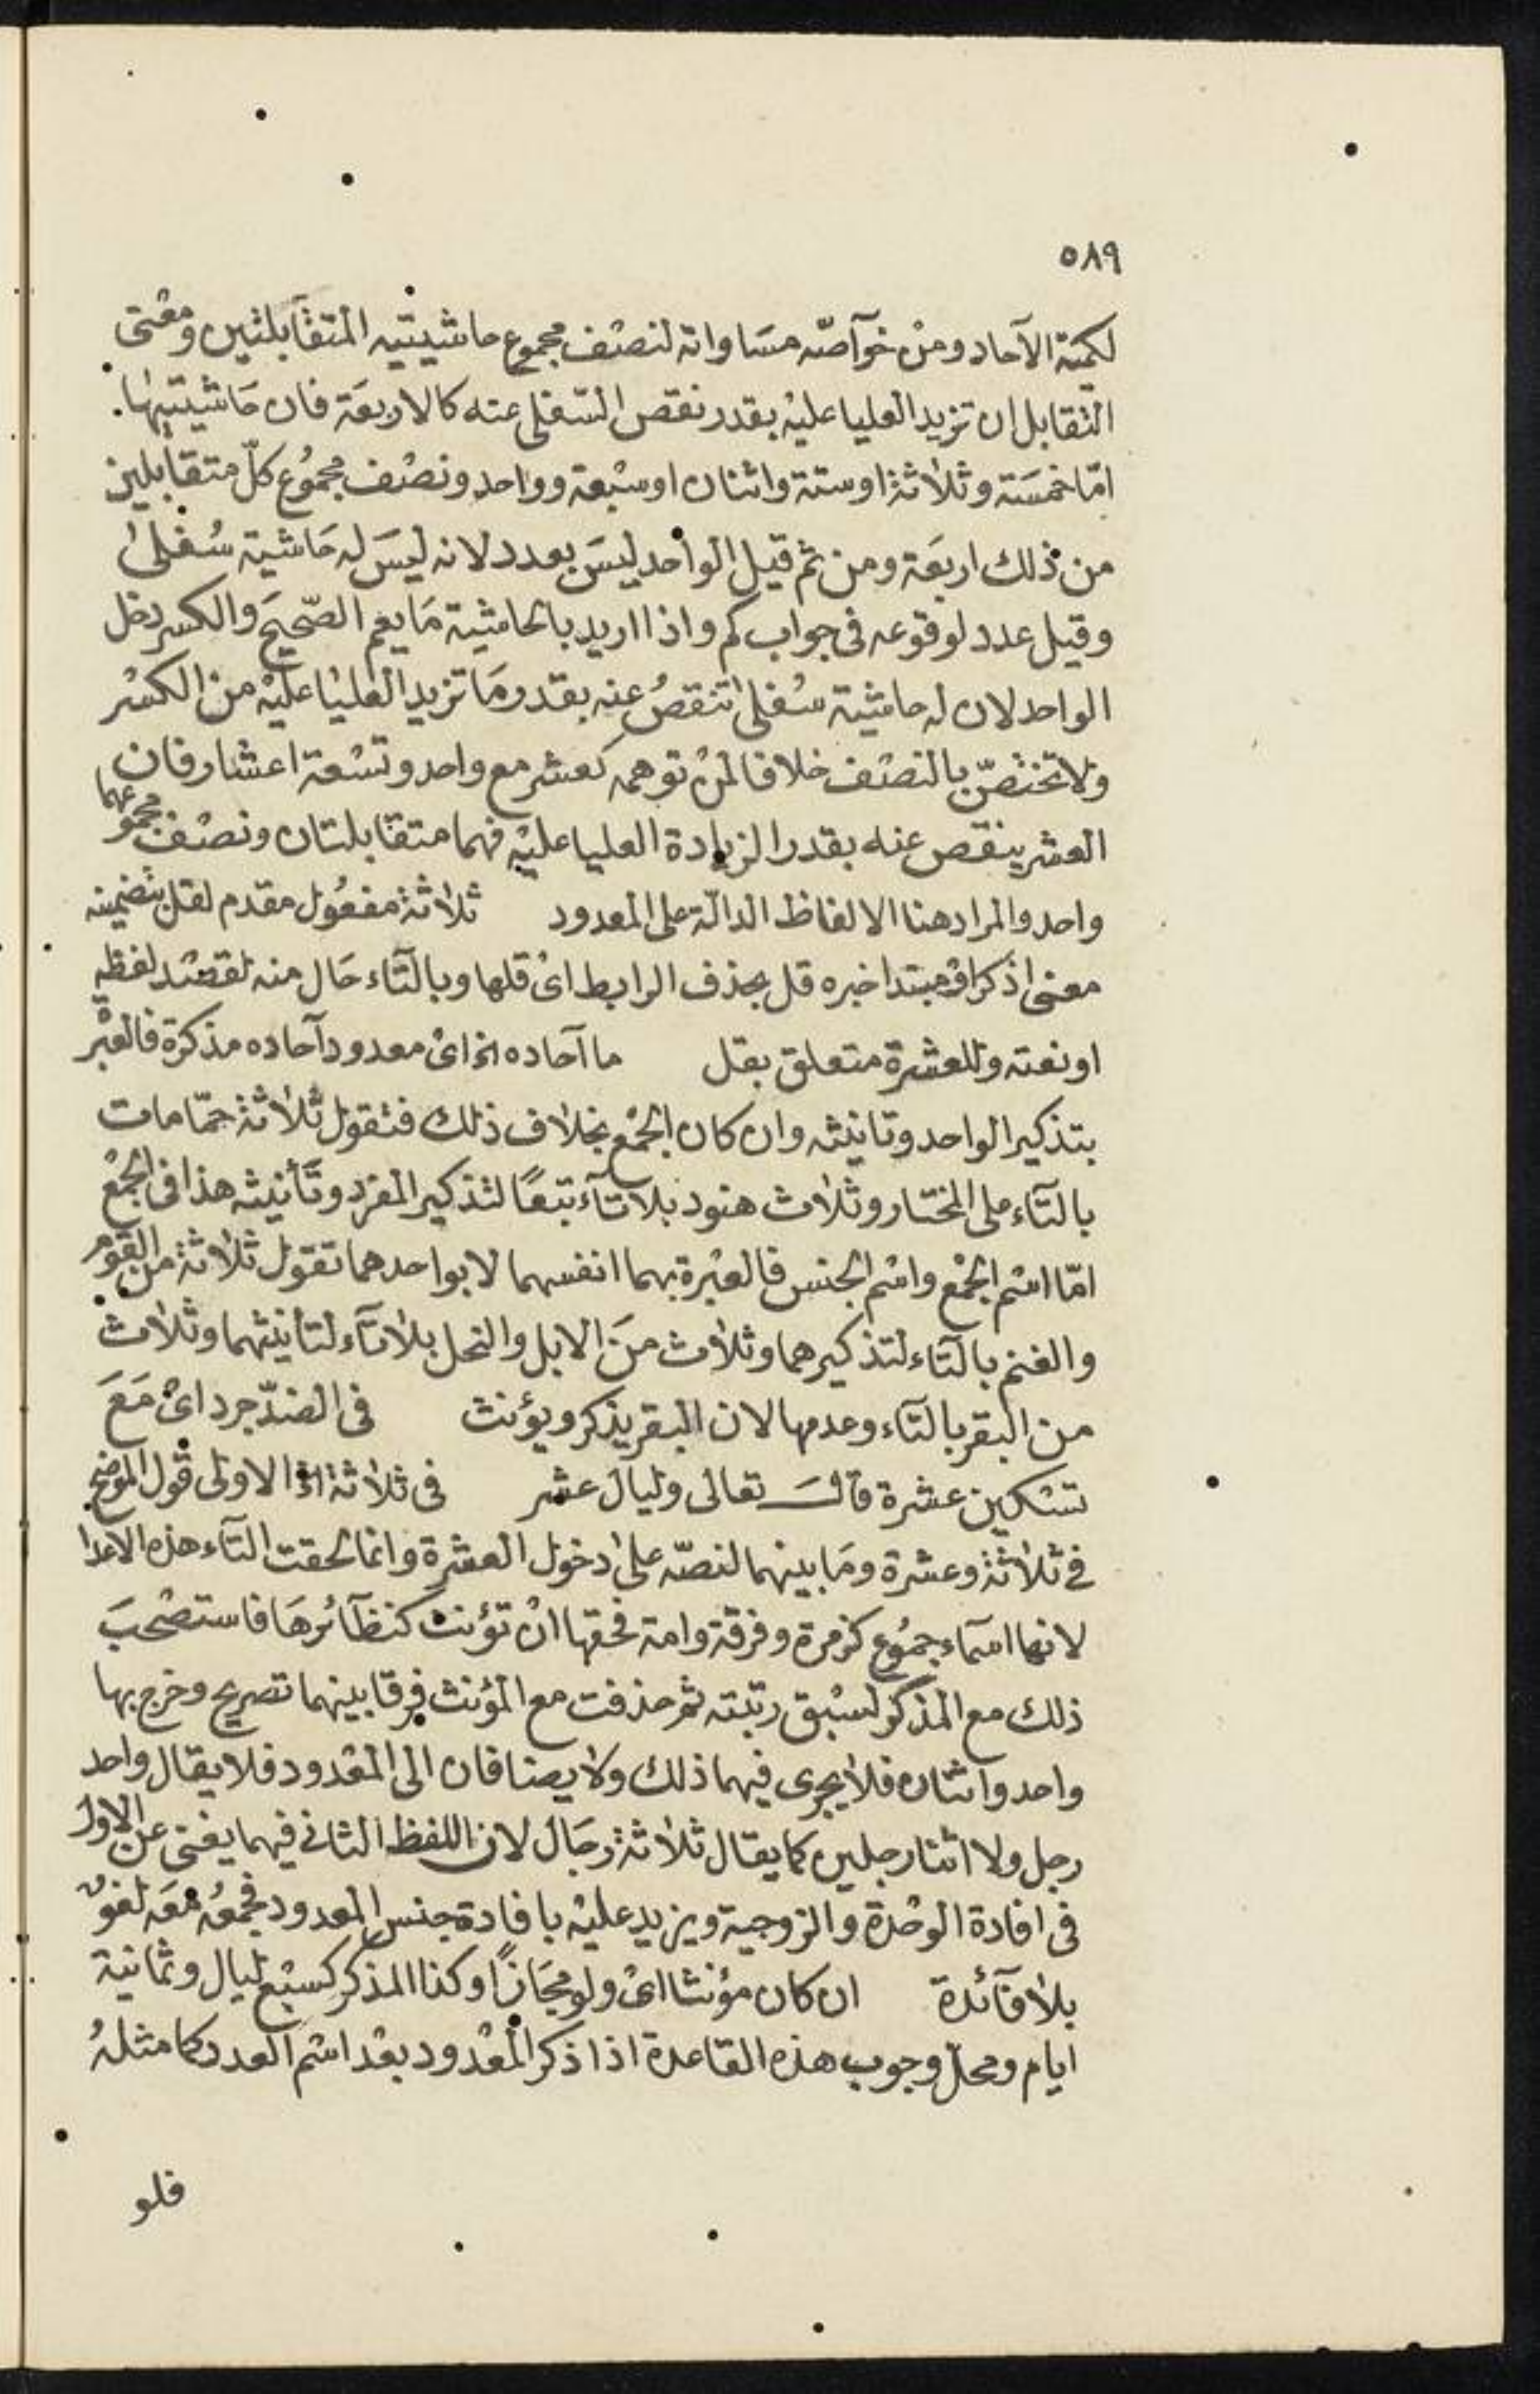 ٥٨٩
لكمية الآحاد ومن خوآصّه مساواته لنصف مجموع حاشيتيه المتقابلتين ومعنى
التقابل ان تزيد العليا عليه بقدر نقص السّفلى عنه كالاربعة فان حاشيتيها
امّا خمسة وثلاثة او ستة واثنان او سبعة وواحد ونصف مجموع كلّ متقابلين
من ذلك اربعة ومن ثم قيل الواحد ليس بعدد لانه ليس له حاشية سفلى
وقيل عدد لوقوعه فى جواب كم واذا اريد بالحاشية ما يعم الصّحيح والكسر دخل
الواحد لان له حاشية سفلى تنقص عنه بقدر ما تزيد العليا عليه من الكسر
ولا تختصّ بالنصف خلافا لمن توهمه كعشر مع واحد وتسعة اعشار فان
العشر ينقص عنه بقدر الزيادة العليا عليه فهما متقابلتان ونصف مجموعهما
واحد والمراد هنا الالفاظ الدالّة على المعدود ثلاثة مفعول مقدم لقل بتضمينه
معنى اذكر او مبتدا خبره قل بحذف الرابط اى قلها وبالتّاء حال منه لقصد لفظه
او نعته وللعشرة متعلق بقل ما آحاده الخ اى معدود آحاده مذكرة فالعبرة
بتذكير الواحد وتانيثه وان كان الجمع بخلاف ذلك فتقول ثلاثة حمّامات
بالتّاء على المختار وثلاث هنود بلا تآء تبعًا لتذكير المفرد وتأنيثه هذا فى الجمع
امّا اسم الجمع واسم الجنس فالعبرة بهما انفسهما لا بواحدهما تقول ثلاثة من القوم
والغنم بالتّاء لتذكيرهما وثلاث من الابل والنحل بلا تآء لتأنيثهما وثلاث
من البقر بالتّاء وعدمها لان البقر يذكر ويؤنث فى الضدّ جرد اى مع
تسكين عشرة قال تعالى وليال عشر فى ثلاثة الخ الاولى قول الموضح
فى ثلاثة وعشرة وما بينهما لنصّه على دخول العشرة وانما لحقت التّآء هذه الاعدا
لانها اسمآء جموع كزمرة وفرقة وامة فحقها ان تؤنث كنظآئرها فاستصحب
ذلك مع المذكر لسبق رتبته ثم حذفت مع المؤنث فرقا بينهما تصريح وخرج بها
واحد واثنان فلا يجرى فيهما ذلك ولا يضافان الى المعدود فلا يقال واحد
رجل ولا اثنا رجلين كما يقال ثلاثة رجال لان اللفظ الثانى فيهما يغنى عن الاول
فى افادة الوحدة والزوجية ويزيد عليه بافادة جنس المعدود فجمعه معه لغو
بلا فآئدة ان كان مؤنثا اى ولو مجازًا وكذا المذكر كسبع ليال وثمانية
ايام ومحلّ وجوب هذه القاعدة اذا ذكر المعدود بعد اسم العدد كما مثله
فلو